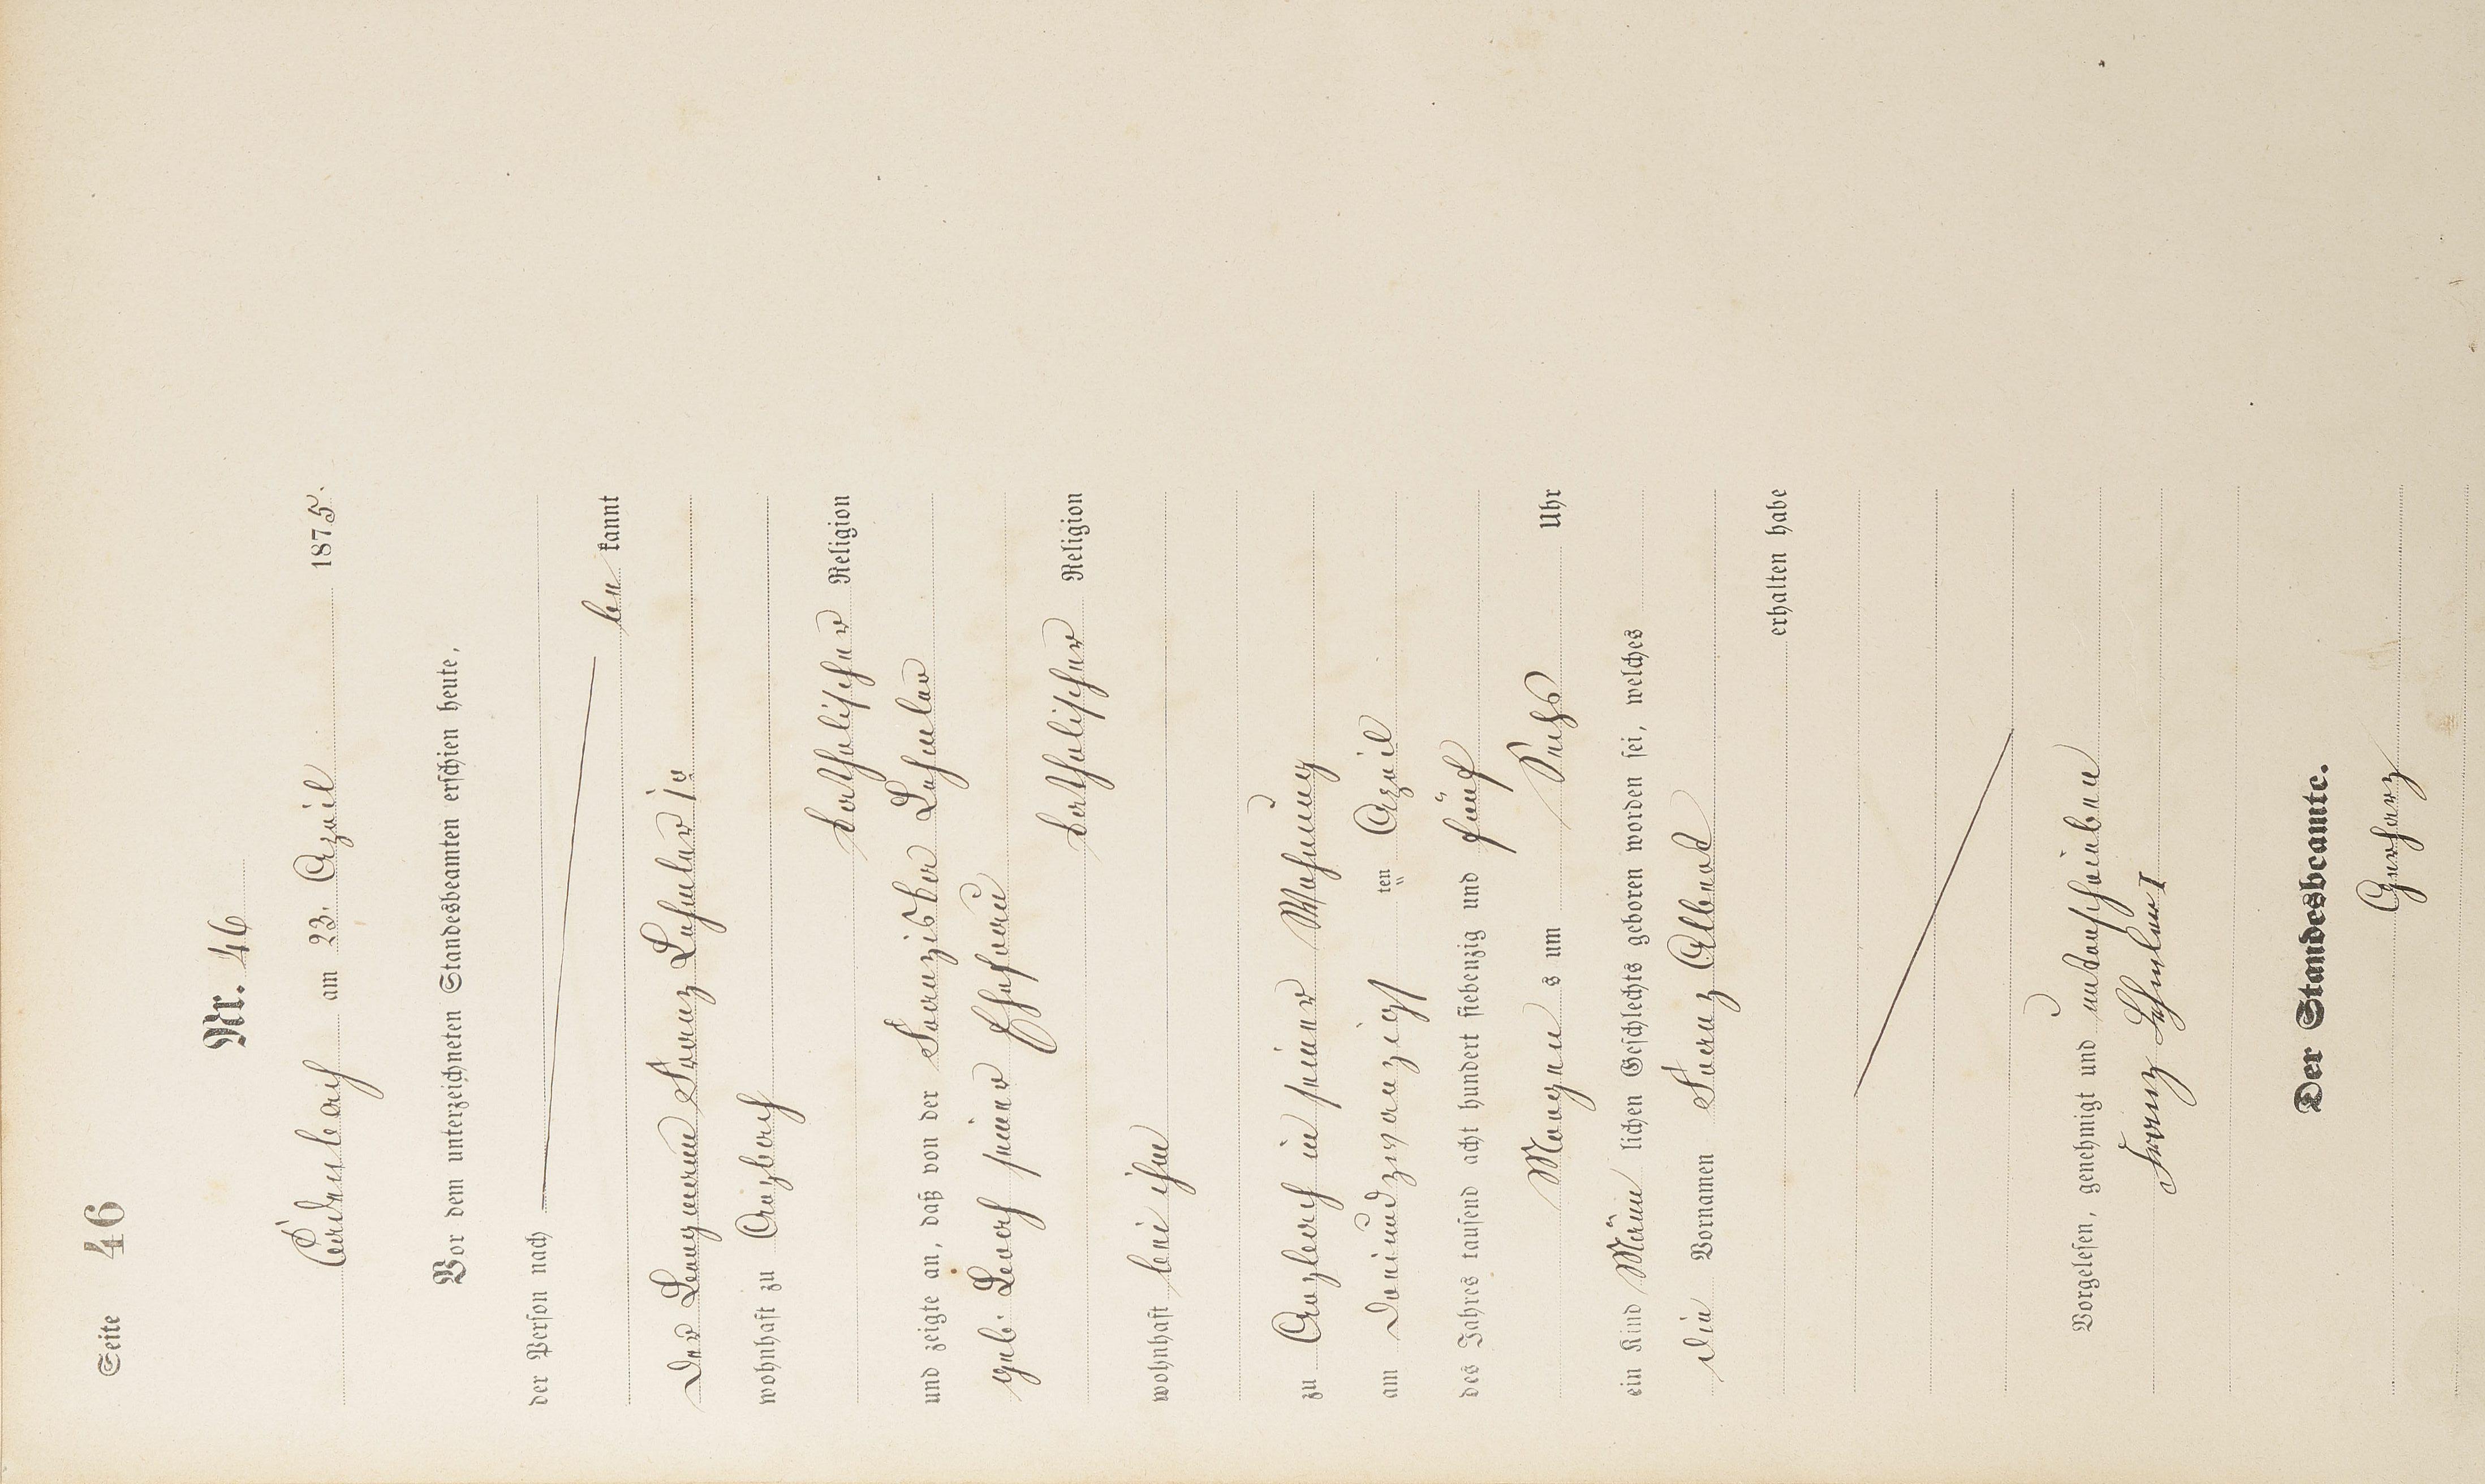 Seite 46
Nr. 46
Cadenbach am 23. April 1875.
Vor dem unterzeichneten Standesbeamten erschien heute,
der Person nach
be kannt
der Bergmann Franz Lehmler 1r
wohnhaft zu Arzbach
katholischer Religion
und zeigte an, daß von der Franziska Lehmler
geb: Bach seiner Ehefrau
katholischer Religion
wohnhaft bei ihm
zu Arzbach in seiner Wohnung
am dreiundzwanzigs ten April
des Jahres tausend acht hundert siebenzig und fünf
Morgen s um Sechs Uhr
ein Kind Männ lichen Geschlechts geboren worden sei, welches
die Vornamen Franz Albert
erhalten habe
Vorgelesen, genehmigt und unterschrieben
Franz Lehmler I
Der Standesbeamte.
Gerharz